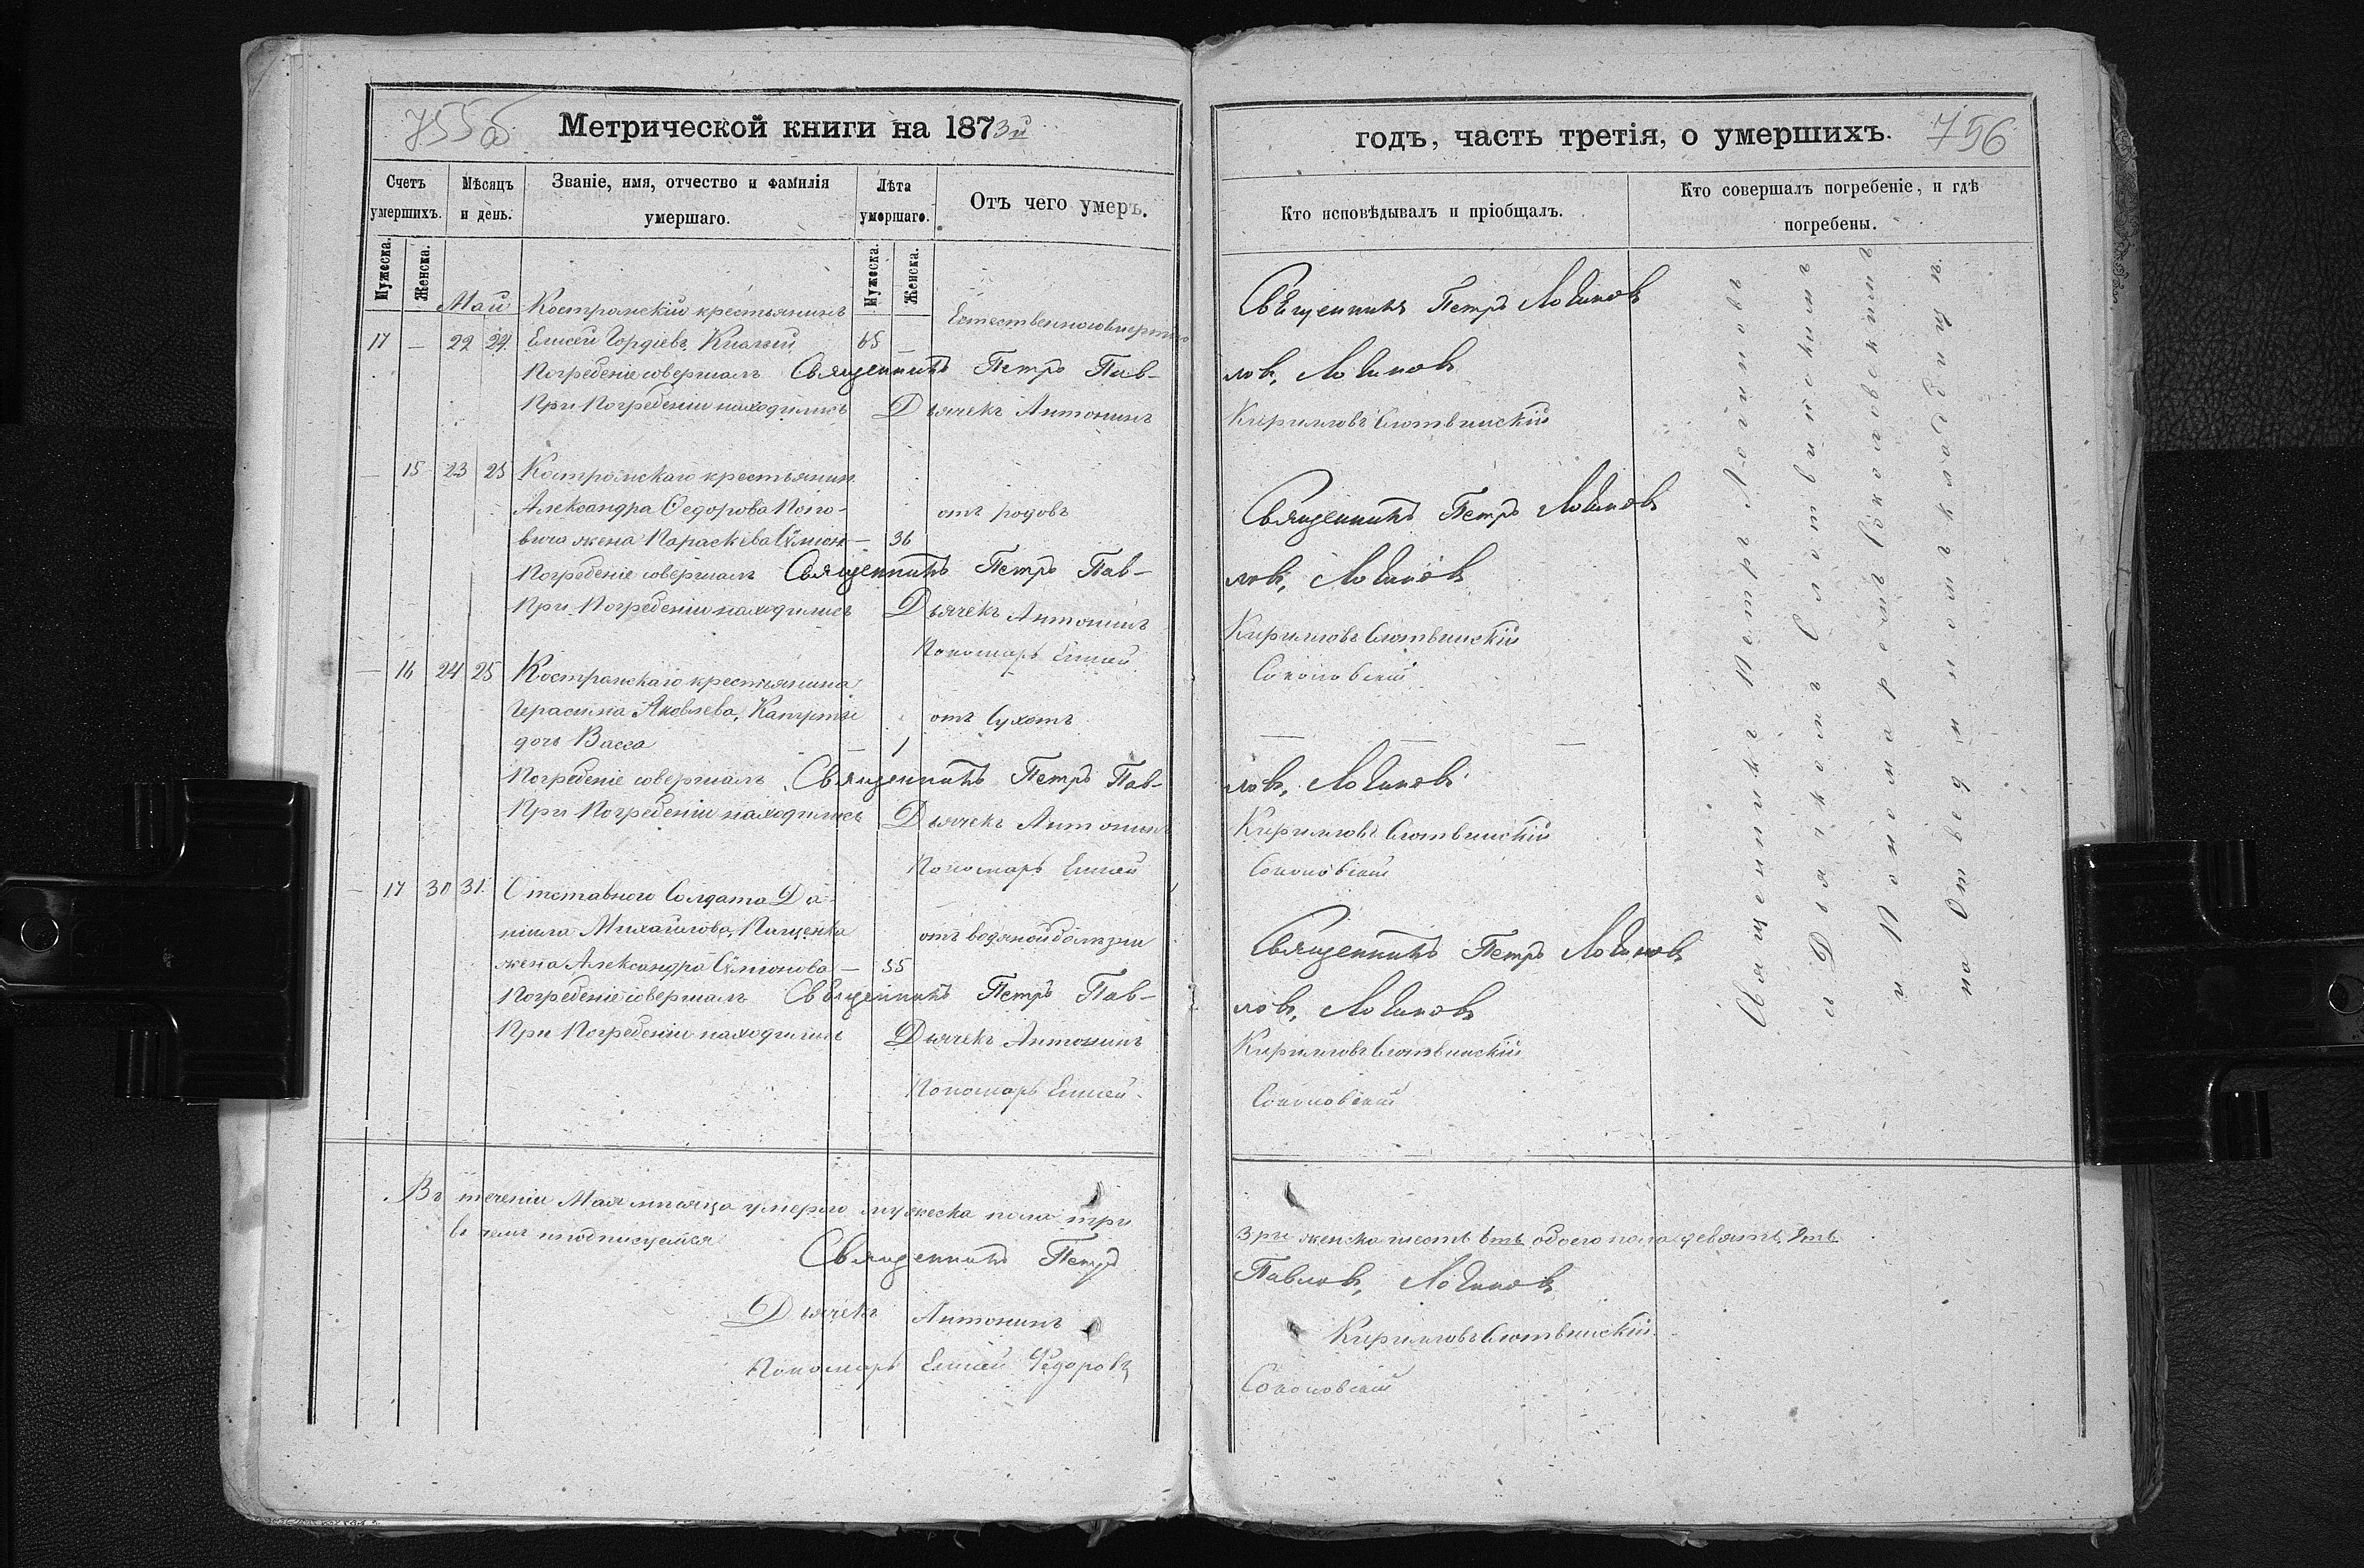 755об
Метрической книги на 1873й
Счетъ умершихъ.
Мужеска.
Женска.
Мѣсяцъ и день.
Званіе, имя, отчество и фамилія умершаго.
Лѣта умершаго.
Мужеска.
Женска.
Отъ чего умеръ.
Май Костромскій крестьянинъ
17 — 22 24 Елисей Гордіевъ 65 —
Погребеніе совершалъ Священникъ Петръ Пав-
При Погребеніи находились Дьячекъ Антонинъ
— 15 23 25 Костромскаго крестьянин
Александра Федорова
отъ родовъ
жена Параскева — 36
Погребеніе совершалъ Священникъ Петръ Пав-
При Погребеніи находились Дьячекъ Антонинъ
Пономарь Елисей
— 16 24 25 Костромскаго крестьянина
Герасима Яковлева,
отъ Сухотъ
дочь Васса — 1
Погребеніе совершалъ Священникъ Петръ Пав-
При Погребеніи находились Дьячекъ Антонинъ
Пономарь Елисей
— 17 30 31 Отставного Солдата Да-
ніила Михайлова, Пищенка
отъ водяной болѣзни
жена Александра Сѵмонова — 55
Погребеніе совершалъ Священникъ Петръ Пав-
При Погребеніи находились Дьячекъ Антонинъ
Пономарь Елисей
Въ теченіи Мая мѣсяца умерло мужеска пола три
въ чемъ и подписуемся
Священникъ Петръ
Дьячекъ Антонинъ
Пономарь Елисей Федоровъ
годъ, часть третія, о умершихъ.
756
Кто исповѣдывалъ и пріобщалъ.
Кто совершалъ погребеніе, и гдѣ погребены.
Священникъ Петръ Логиновъ
ловъ, Логиновъ
Кирилловъ Слотвинскій
Священникъ Петръ Логиновъ
ловъ, Логиновъ
Кирилловъ Слотвинскій
Соколовскій
— — —
ловъ, Логиновъ
Кирилловъ Слотвинскій
Соколовскій
Священникъ Петръ Логиновъ
ловъ, Логиновъ
Кирилловъ Слотвинскій
Соколовскій
Священникъ Петръ Логиновъ
с Дьячкомъ Слотвинскимъ
и Пономаремъ Соколовскимъ
на Отведенномъ кладбищѣ
3ри женска шесть 6ть обоего пола девять, 9ть
Павловъ, Логиновъ
Кирилловъ Слотвинскій
Соколовскій